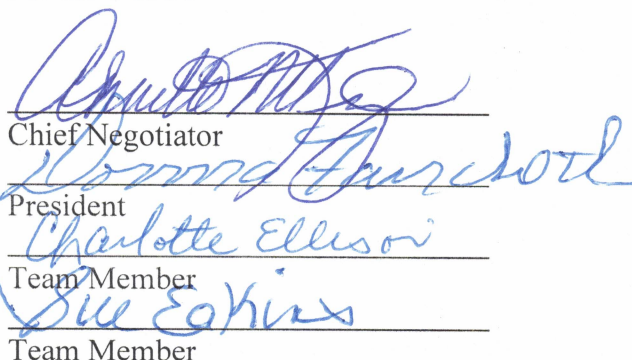 Annette
Chief Negotiator
Donna Faircloth
President
Charlotte Ellison
Team Member
Sue Eakins
Team Member